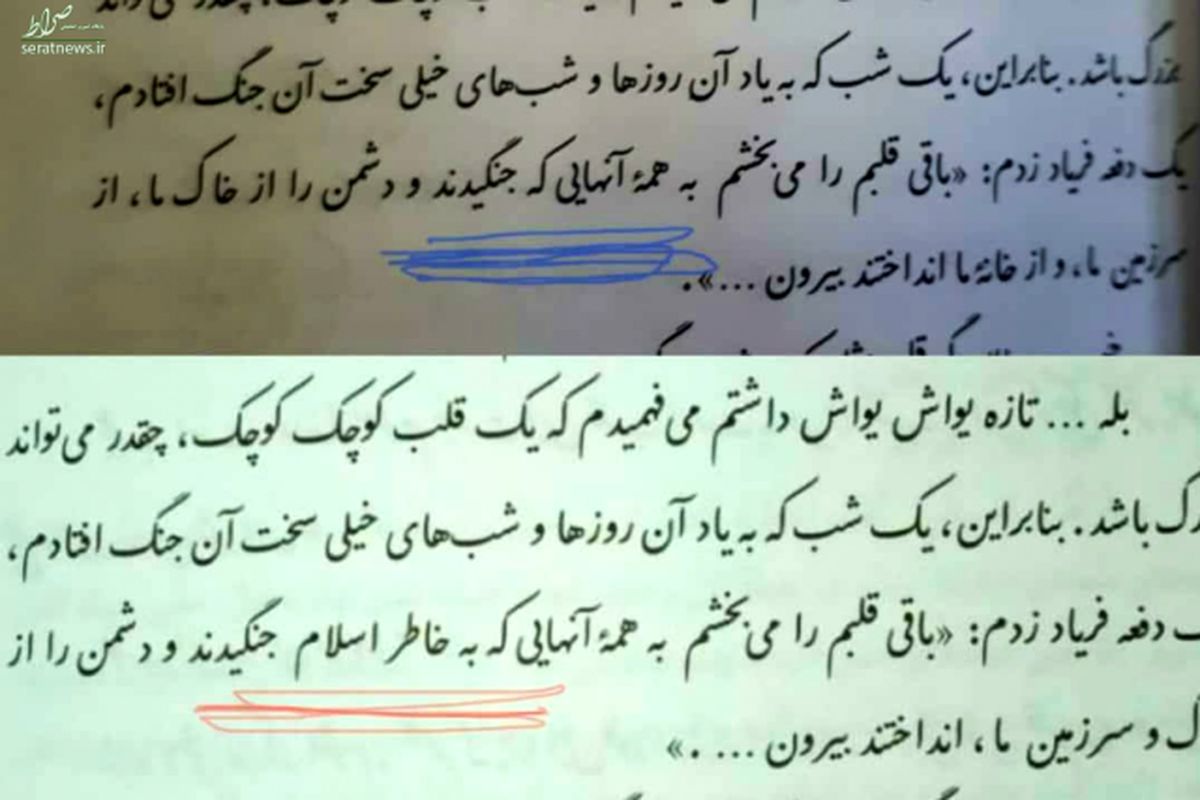 صراط
seratnews.ir
بزرگ باشد. بنابراین، یک شب که به یاد آن روزها و شب‌های خیلی سخت آن جنگ افتادم،
یک دفعه فریاد زدم: «باقی قلبم را می‌بخشم به همهٔ آنهایی که جنگیدند و دشمن را از خاک ما، از
سرزمین ما، و از خانهٔ ما انداختند بیرون ...».
بله ... تازه یواش یواش داشتم می‌فهمیدم که یک قلب کوچک کوچک، چقدر می‌تواند
باشد. بنابراین، یک شب که به یاد آن روزها و شب‌های خیلی سخت آن جنگ افتادم،
دفعه فریاد زدم: «باقی قلبم را می‌بخشم به همهٔ آنهایی که به خاطر اسلام جنگیدند و دشمن را از
و سرزمین ما، انداختند بیرون ... .»